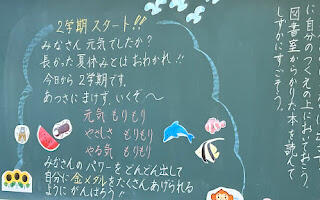 2学期 スタート!!
みなさん 元気でしたか?
長かった夏休みとはおわかれ!!
今日から2学期です。
あつさに まけず、いくぞ〜
元気 もりもり
やさしさ もりもり
やる気 もりもり
みんなのパワーをどんどん出して
自分に金メダルをたくさんあげられる
ようにがんばろう!!
に自分のつくえの上においておこう。
図書室からかりた本を読んで
しずかにすごそう。